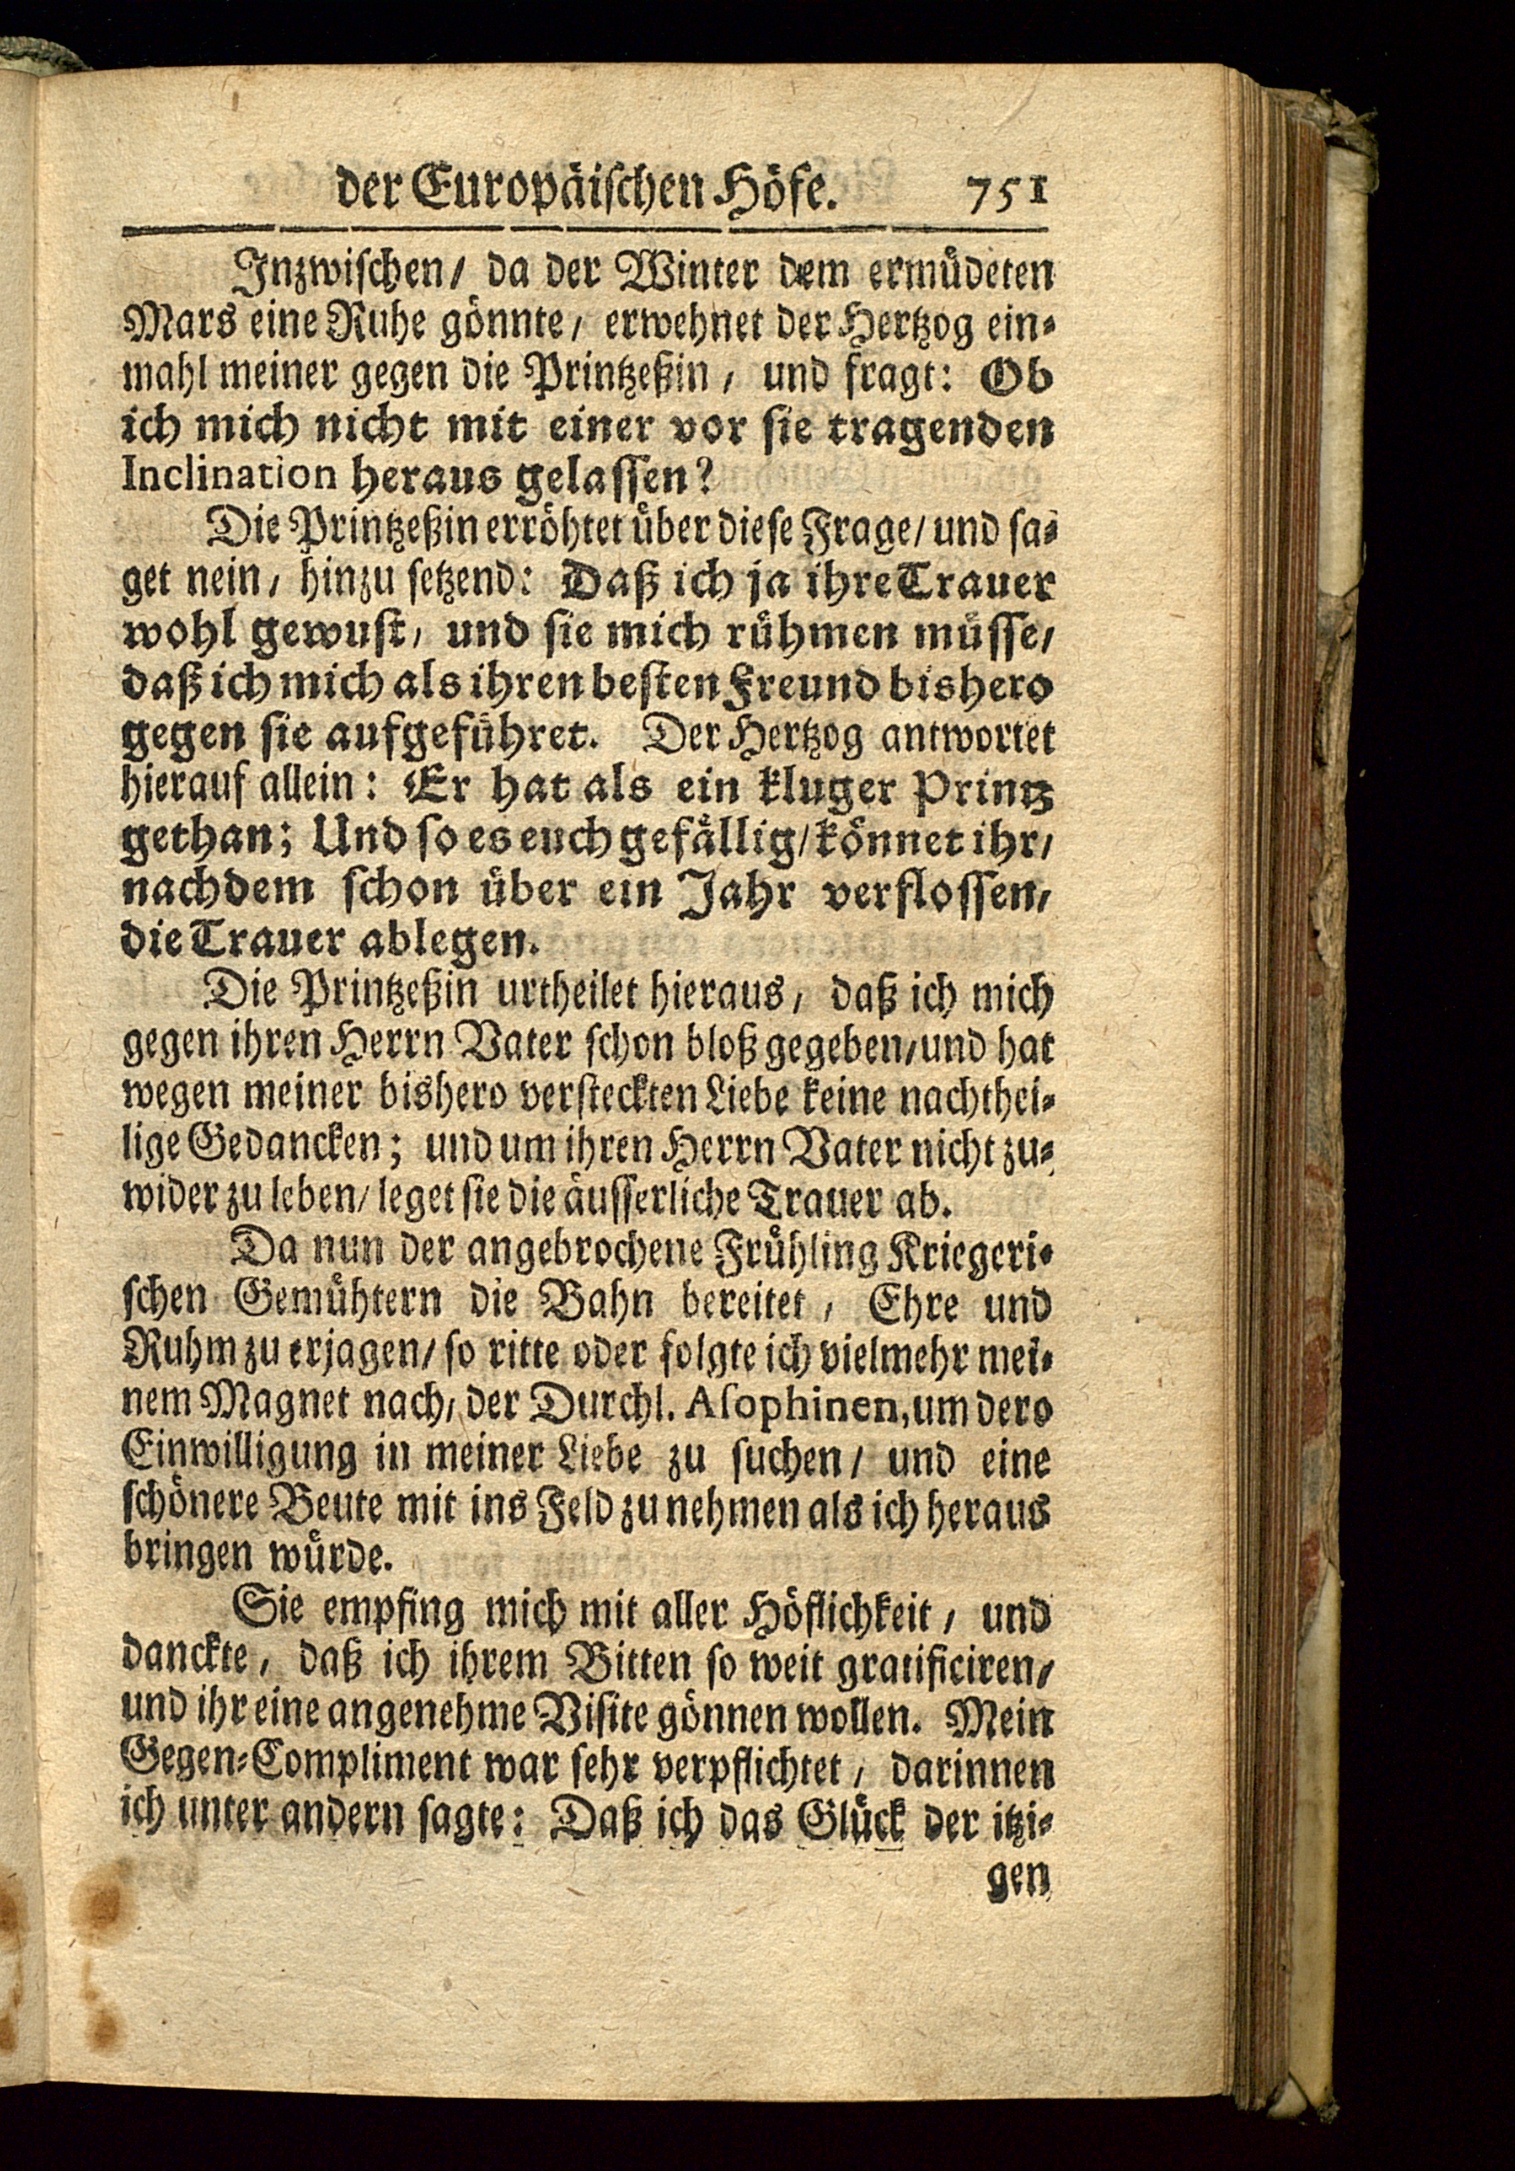 der Europäischen Höfe. 751
Inzwischen/ da der Winter dem ermüdeten
Mars eine Ruhe gönnte/ erwehnet der Hertzog ein-
mahl meiner gegen die Printzeßin/ und fragt: Ob
ich mich nicht mit einer vor sie tragenden
Inclination heraus gelassen?
Die Printzeßin erröhtet über diese Frage/ und sa-
get nein/ hinzu setzend: Daß ich ja ihre Trauer
wohl gewust/ und sie mich rühmen müsse/
daß ich mich als ihren besten Freund bishero
gegen sie aufgeführet. Der Hertzog antwortet
hierauf allein: Er hat als ein kluger Printz
gethan; Und so es euch gefällig/ könnet ihr/
nachdem schon über ein Jahr verflossen/
die Trauer ablegen.
Die Printzeßin urtheilet hieraus/ daß ich mich
gegen ihren Herrn Vater schon bloß gegeben/ und hat
wegen meiner bishero versteckten Liebe keine nachthei-
lige Gedancken; und um ihren Herrn Vater nicht zu-
wider zu leben/ leget sie die äusserliche Trauer ab.
Da nun der angebrochene Frühling Kriegeri-
schen Gemühtern die Bahn bereitet/ Ehre und
Ruhm zu erjagen/ so ritte oder folgte ich vielmehr mei-
nem Magnet nach/ der Durchl. Asophinen, um dero
Einwilligung in meiner Liebe zu suchen/ und eine
schönere Beute mit ins Feld zu nehmen als ich heraus
bringen würde.
Sie empfing mich mit aller Höflichkeit/ und
danckte/ daß ich ihrem Bitten so weit gratificiren/
und ihr eine angenehme Visite gönnen wollen. Mein
Gegen-Compliment war sehr verpflichtet/ darinnen
ich unter andern sagte: Daß ich das Glück der itzi-
gen